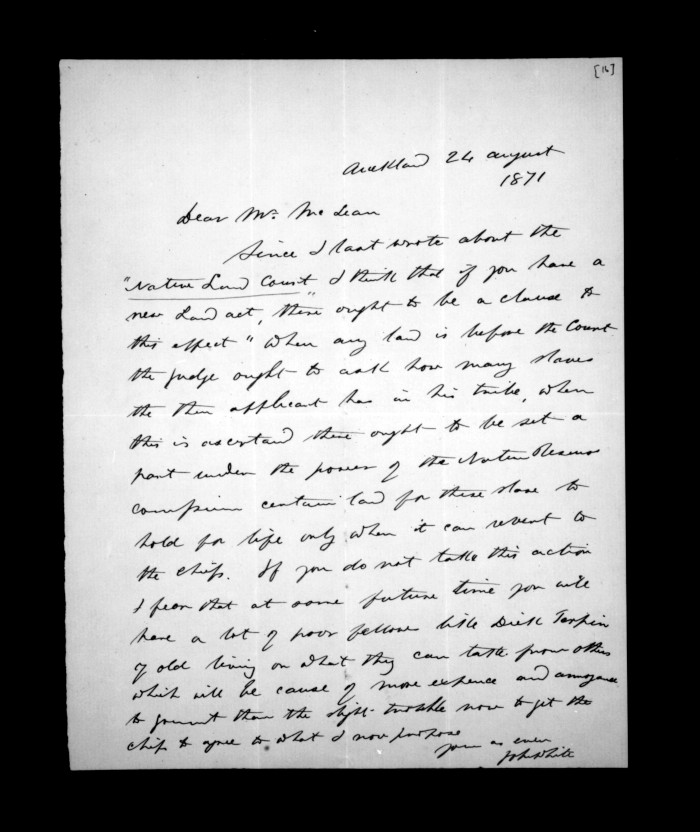 [16]
Auckland 24 august
1871
Dear Mr. McLean
Since I last wrote about the
"Native Land Court" I think that if you have a
new Land act, there ought to be a clause to
this effect "When any land is before the Court
the judge ought to ask how many slaves
the then applicant has in his tribe, when
this is ascertaind there ought to be set a
part under the power of the Native Reserve
commission certain land for these slave to
hold for life only when it can revert to
the chiefs. If you do not take this action
I fear that at some future time you will
have a lot of poor fellows like Dick Turpin
of old living on what they can take from others
which will be cause of more expence and annoyance
to govment than the slight trouble now to get the
chiefs to agree to what I now purpose
yours as ever
John White